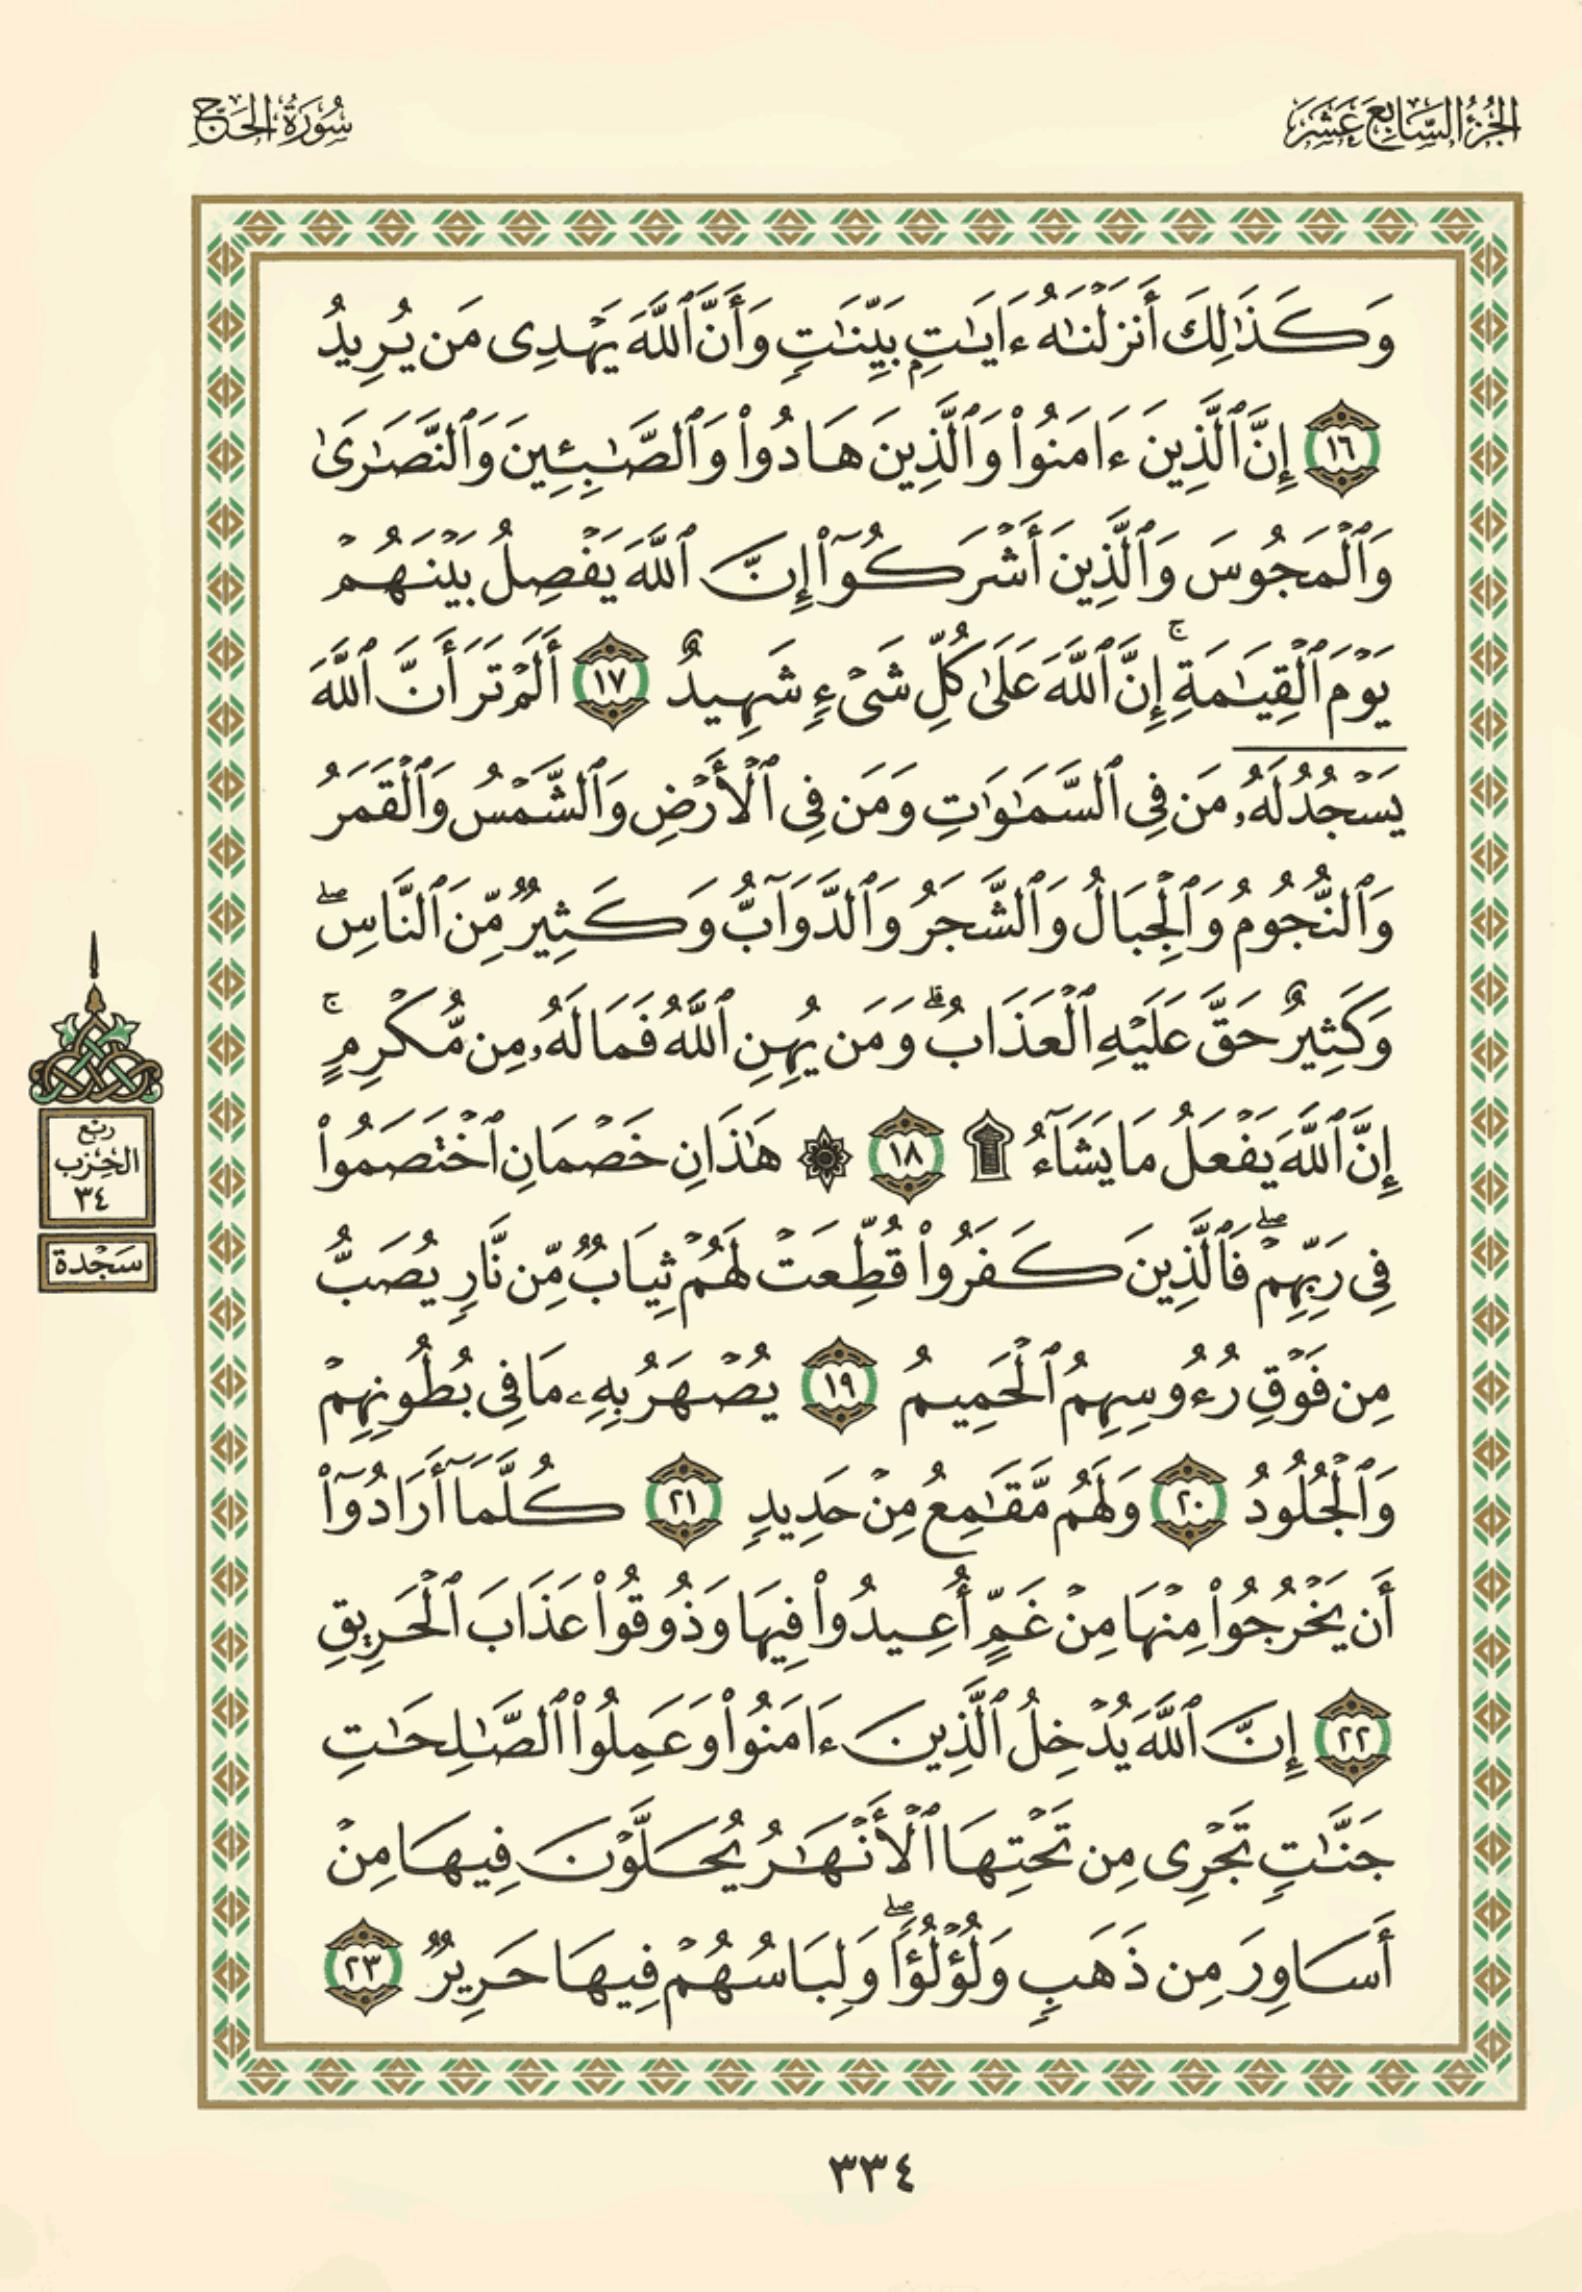 الجُزْءُ السَّابِعَ عَشَرَ
سُورَةُ الحَجّ
وَكَذَٰلِكَ أَنزَلۡنَٰهُ ءَايَٰتِۭ بَيِّنَٰتٖ وَأَنَّ ٱللَّهَ يَهۡدِي مَن يُرِيدُ
١٦ إِنَّ ٱلَّذِينَ ءَامَنُواْ وَٱلَّذِينَ هَادُواْ وَٱلصَّٰبِـِٔينَ وَٱلنَّصَٰرَىٰ
وَٱلۡمَجُوسَ وَٱلَّذِينَ أَشۡرَكُوٓاْ إِنَّ ٱللَّهَ يَفۡصِلُ بَيۡنَهُمۡ
يَوۡمَ ٱلۡقِيَٰمَةِۚ إِنَّ ٱللَّهَ عَلَىٰ كُلِّ شَيۡءٖ شَهِيدٌ ١٧ أَلَمۡ تَرَ أَنَّ ٱللَّهَ
يَسۡجُدُۤ لَهُۥۤ مَن فِي ٱلسَّمَٰوَٰتِ وَمَن فِي ٱلۡأَرۡضِ وَٱلشَّمۡسُ وَٱلۡقَمَرُ
وَٱلنُّجُومُ وَٱلۡجِبَالُ وَٱلشَّجَرُ وَٱلدَّوَآبُّ وَكَثِيرٞ مِّنَ ٱلنَّاسِۖ
وَكَثِيرٌ حَقَّ عَلَيۡهِ ٱلۡعَذَابُۗ وَمَن يُهِنِ ٱللَّهُ فَمَا لَهُۥ مِن مُّكۡرِمٍۚ
إِنَّ ٱللَّهَ يَفۡعَلُ مَا يَشَآءُ ۩ ١٨ ۞ هَٰذَانِ خَصۡمَانِ ٱخۡتَصَمُواْ
فِي رَبِّهِمۡۖ فَٱلَّذِينَ كَفَرُواْ قُطِّعَتۡ لَهُمۡ ثِيَابٞ مِّن نَّارٖ يُصَبُّ
مِن فَوۡقِ رُءُوسِهِمُ ٱلۡحَمِيمُ ١٩ يُصۡهَرُ بِهِۦ مَا فِي بُطُونِهِمۡ
وَٱلۡجُلُودُ ٢٠ وَلَهُم مَّقَٰمِعُ مِنۡ حَدِيدٖ ٢١ كُلَّمَآ أَرَادُوٓاْ
أَن يَخۡرُجُواْ مِنۡهَا مِنۡ غَمٍّ أُعِيدُواْ فِيهَا وَذُوقُواْ عَذَابَ ٱلۡحَرِيقِ
٢٢ إِنَّ ٱللَّهَ يُدۡخِلُ ٱلَّذِينَ ءَامَنُواْ وَعَمِلُواْ ٱلصَّٰلِحَٰتِ
جَنَّٰتٖ تَجۡرِي مِن تَحۡتِهَا ٱلۡأَنۡهَٰرُ يُحَلَّوۡنَ فِيهَا مِنۡ
أَسَاوِرَ مِن ذَهَبٖ وَلُؤۡلُؤٗاۖ وَلِبَاسُهُمۡ فِيهَا حَرِيرٞ ٢٣
ربع
الحزب
٣٤
سَجْدَة
٣٣٤